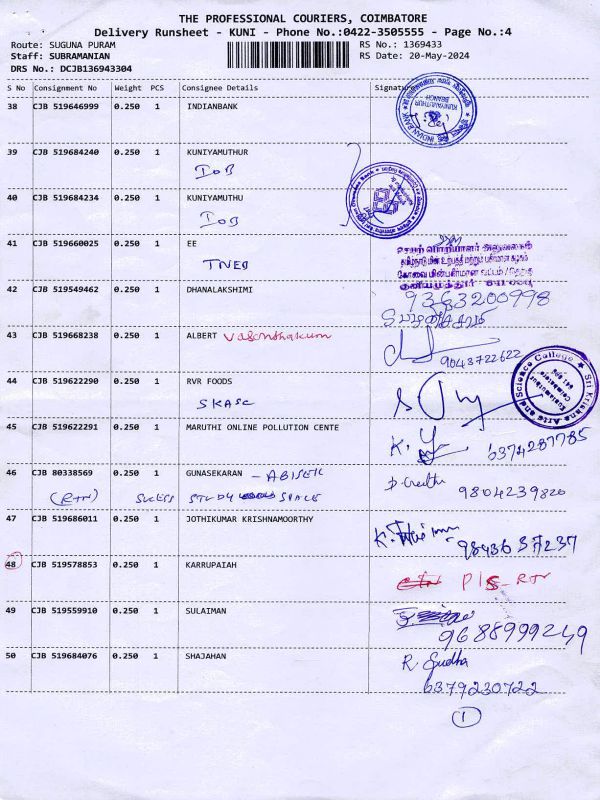 THE PROFESSIONAL COURIERS, COIMBATORE
Delivery Runsheet - KUNI - Phone No.:0422-3505555 - Page No.:4
Route: SUGUNA PURAM RS No.: 1369433
Staff: SUBRAMANIAN RS Date: 20-May-2024
DRS No.: DCJB136943304
S No Consignment No Weight PCS Consignee Details Signature
38 CJB 519646999 0.250 1 INDIANBANK
INDIAN BANK KUNIYAMUTHUR BRANCH
39 CJB 519684240 0.250 1 KUNIYAMUTHUR
IOB
40 CJB 519684234 0.250 1 KUNIYAMUTHU
IOB
41 CJB 519660025 0.250 1 EE
TNEB
42 CJB 519549462 0.250 1 DHANALAKSHIMI
9363200998
43 CJB 519668238 0.250 1 ALBERT Vasanthakum
9043722622
44 CJB 519622290 0.250 1 RVR FOODS
SKASC
Sri Krishna Arts and Science College
45 CJB 519622291 0.250 1 MARUTHI ONLINE POLLUTION CENTE
6374287785
46 CJB 80338569 0.250 1 GUNASEKARAN - ABISEK
(RTN) SUCESS STUDY SPACE
9804239820
47 CJB 519686011 0.250 1 JOTHIKUMAR KRISHNAMOORTHY
9843637237
48 CJB 519578853 0.250 1 KARRUPAIAH
P/S - RTN
49 CJB 519559910 0.250 1 SULAIMAN
9688999249
50 CJB 519684076 0.250 1 SHAJAHAN R. Sudha
6379230722
1